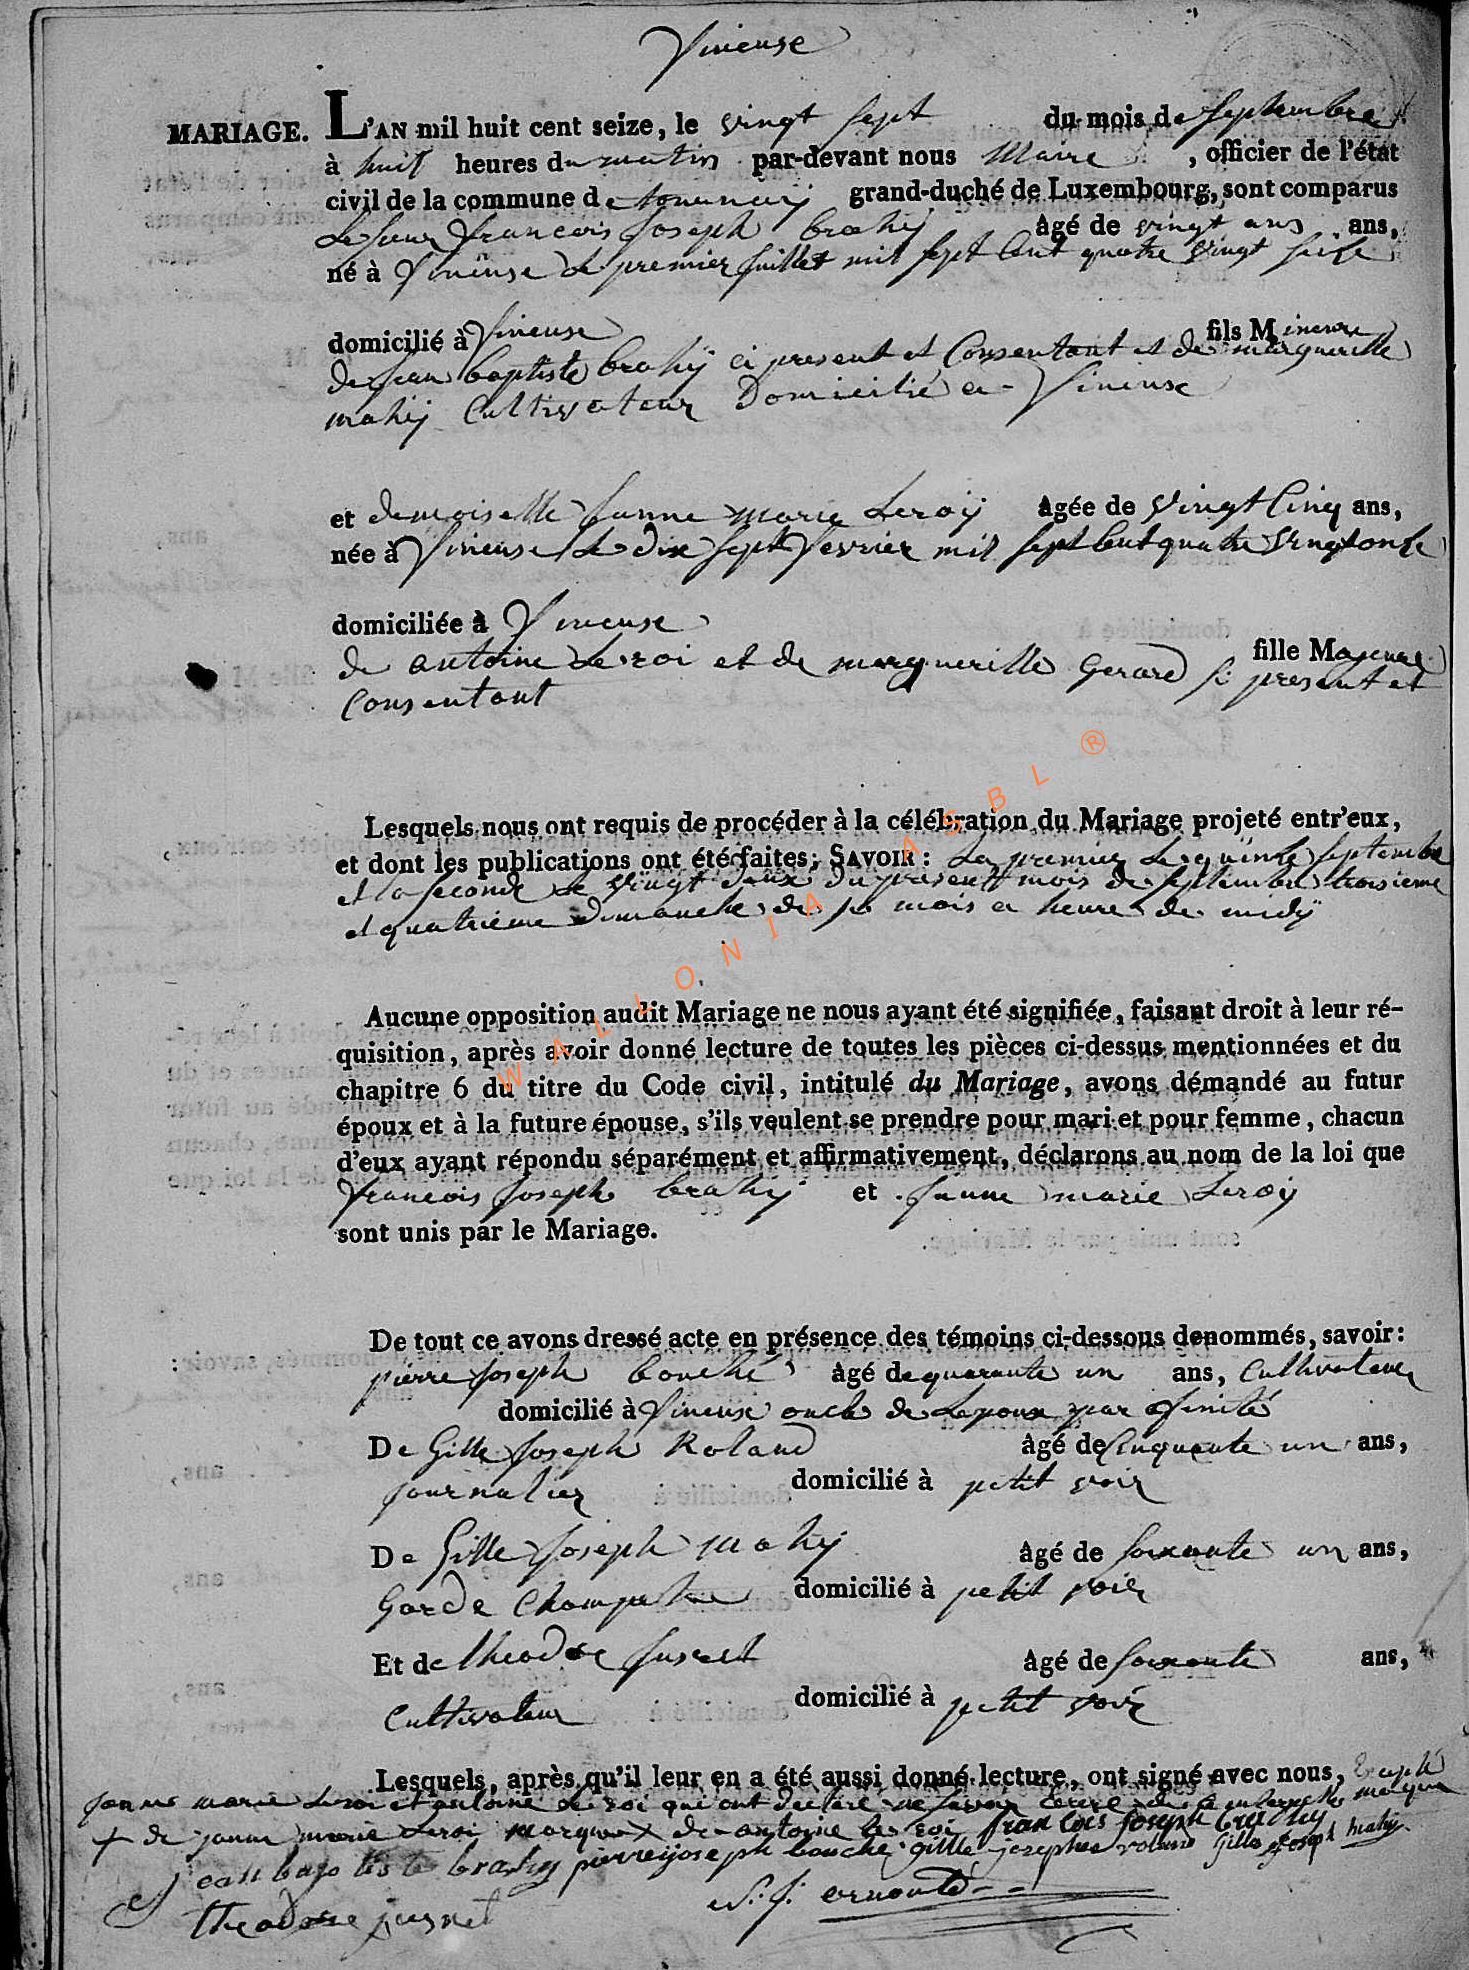 Vineuse
MARIAGE. L'AN mil huit cent seize, le vingt sept du mois de Septembre
à huit heures du matin par-devant nous Maire, officier de l'état
civil de la commune de grand-duché de Luxembourg, sont comparus
Le sieur francois Joseph brahÿ âgé de vingt ans ans,
né à Vineuse Le premier Juillet mil sept Cent quatre vingt seize
domicilié à Vineuse fils Mineure
de Jean baptiste brahÿ ci present et Consentant et de marguerille
mahÿ Cultivateur Domicilié a Vineuse
et demoiselle Janne marie Leroÿ âgée de Vingt Cinq ans,
née à Vineuse Le dix Sept Fevrier mil sept Cent quatre Vingt onze
domiciliée à Vineuse
fille Majeure
de antoine Le roi et de marguerille Gerard si present et
Consentant
Lesquels nous ont requis de procéder à la célébration du Mariage projeté entr'eux,
et dont les publications ont été faites; SAVOIR : La premier Le quinze Septembre
et la seconde Le vingt deux du present mois de Septembre troisieme
et quatrieme dimanche de mois a heure de midÿ
WALLONIA ASBL ®
Aucune opposition audit Mariage ne nous ayant été signifiée, faisant droit à leur ré-
quisition, après avoir donné lecture de toutes les pièces ci-dessus mentionnées et du
chapitre 6 du titre du Code civil, intitulé du Mariage, avons démandé au futur
époux et à la future épouse, s'ils veulent se prendre pour mari et pour femme, chacun
d'eux ayant répondu séparément et affirmativement, déclarons au nom de la loi que
francois Joseph brahÿ et Janne marie Leroÿ
sont unis par le Mariage.
De tout ce avons dressé acte en présence des témoins ci-dessous denommés, savoir:
pierre Joseph bouché âgé de quarante un ans, Cultivateur
domicilié à Vineuse oncle de Lepoux par afinité
De Gille Joseph Roland âgé de Cinquante un ans,
Journalier domicilié à petit voir
De Gille Joseph mahÿ âgé de soixante un ans,
Garde Champetre domicilié à petit voir
Et de theodore Jusret âgé de soixante ans,
Cultivateur domicilié à petit voir
Lesquels, après qu'il leur en a été aussi donné lecture, ont signé avec nous, Excepté
Janne marie Leroi et antoine Le roi qui ont declaré ne savoir Ecrire marque
+ de janne marie Leroi marque x de antoine Le roi francois Joseph brahy
Jean baptiste brahy pierre joseph bouché gille josephe roland Gille Joseph mahy
theodore jusret